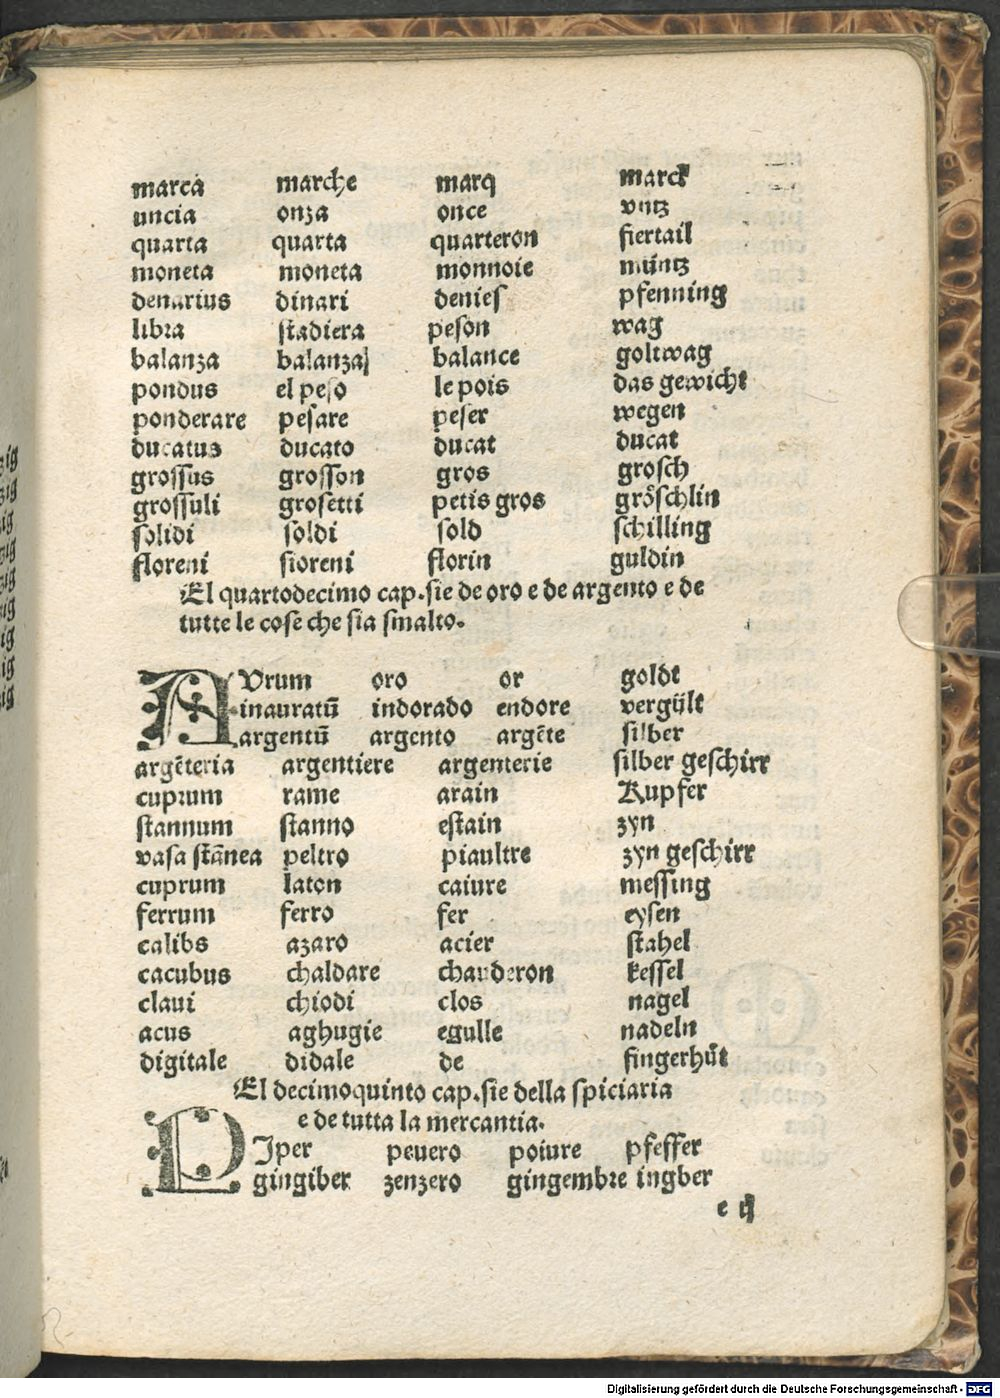 marca marche marq marck
uncia onza once vntz
quarta quarta quarteron fiertail
moneta moneta monnoie müntz
denarius dinari denieſ pfenning
libra ſtadiera peſon wag
balanza balanza balance goltwag
pondus el peſo le pois das gewicht
ponderare peſare peſer wegen
ducatus ducato ducat ducat
groſſus groſſon gros groſch
groſſuli groſetti petis gros gröſchlin
ſolidi ſoldi ſold ſchilling
floreni fioreni florin guldin
El quartodecimo cap.ſie de oro e de argento e de
tutte le coſe che ſia ſmalto.
AVrum oro or goldt
inauratū indorado endore vergült
argentū argento argēte ſilber
argēteria argentiere argenterie ſilber geſchirr
cuprum rame arain Kupfer
ſtannum ſtanno eſtain zyn
vaſa ſtānea peltro piaultre zyn geſchirr
cuprum laton caiure meſſing
ferrum ferro fer eyſen
calibs azaro acier ſtahel
cacubus chaldare chauderon keſſel
claui chiodi clos nagel
acus aghugie egulle nadeln
digitale didale de fingerhůt
El decimoquinto cap.ſie della ſpiciaria
e de tutta la mercantia.
PIper peuero poiure pfeffer
gingiber zenzero gingembre ingber
e ij
zig
zig
ig
zig
zig
ig
ig
ig
ig
Digitalisierung gefördert durch die Deutsche Forschungsgemeinschaft - DFG